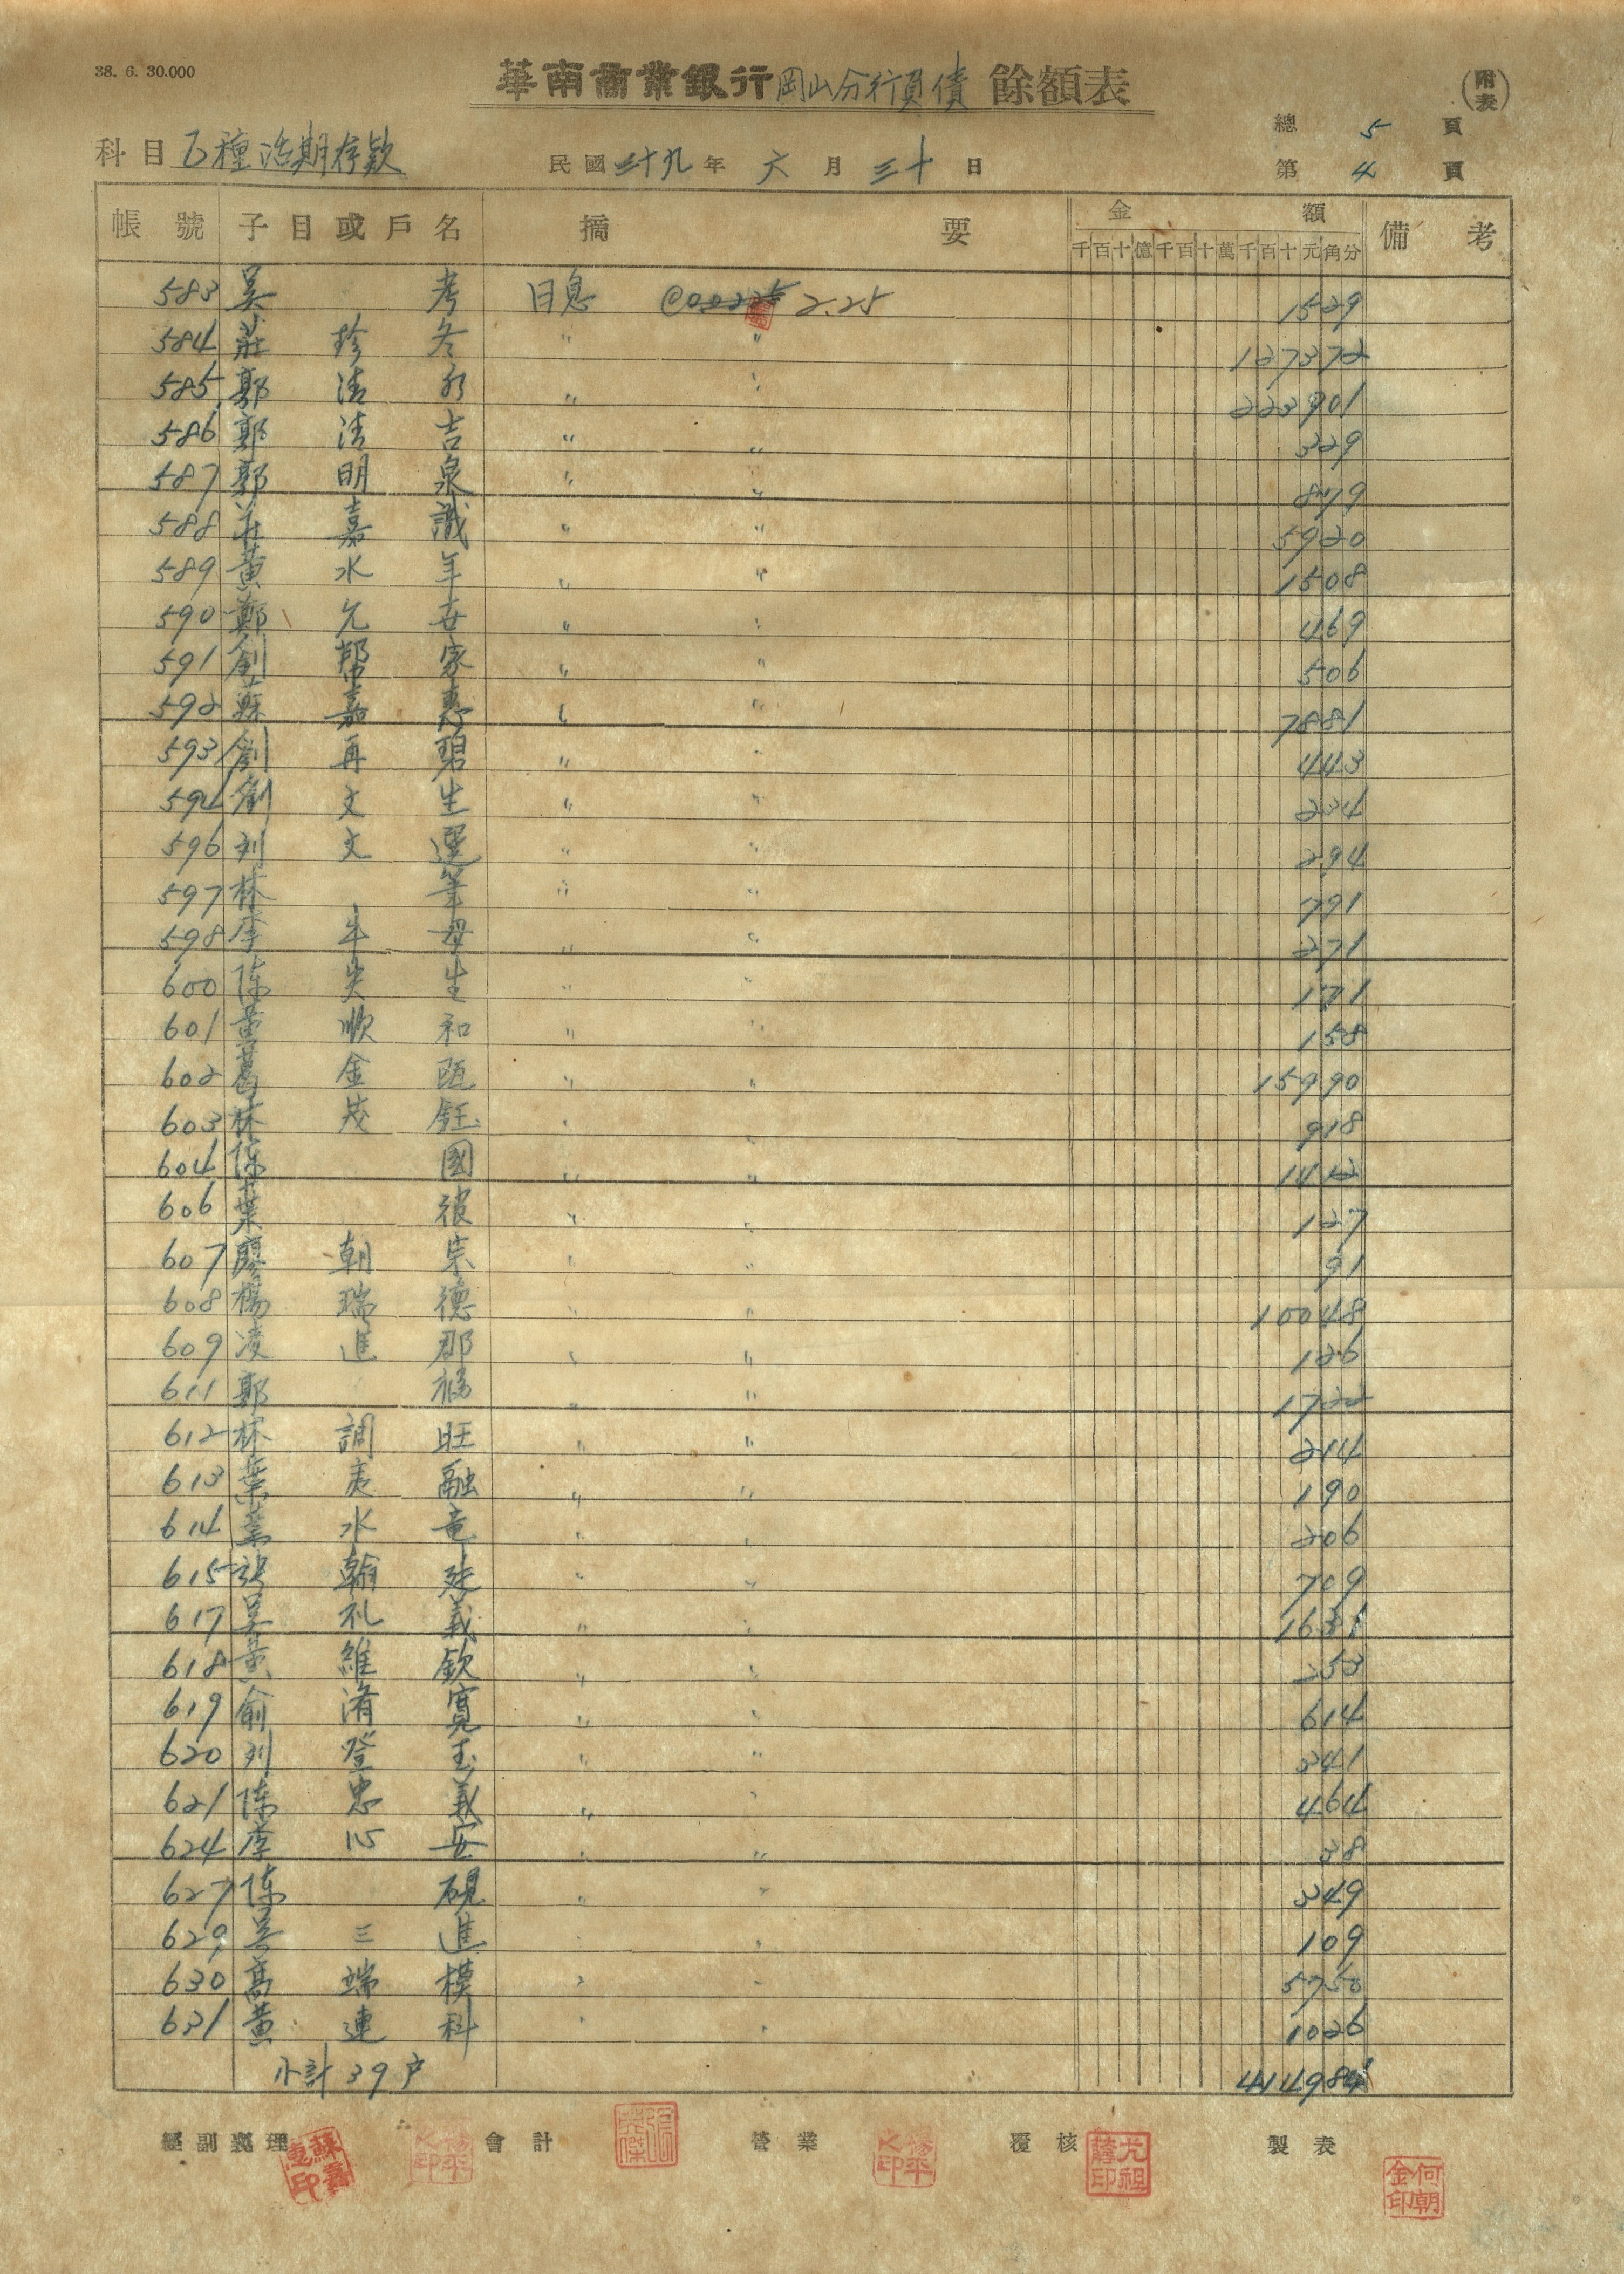 38. 6. 30.000
華南商業銀行岡山分行負債 餘額表
(附表)
總 5 頁
科目 乙種活期存款 民國 三十九 年 六 月 三十 日
第 4 頁
帳號 子目或戶名 摘要 金額 備考
千百十億千百十萬千百十元角分
583 吳 考 日息 @ 2.25 1529
584 莊珍冬 〃 〃 127372
585 郭清水 〃 〃 223901
586 郭清吉 〃 〃 329
587 郭明泉 〃 〃 879
588 莊嘉識 〃 〃 5920
589 黃水年 〃 〃 1508
590 鄭允安 〃 〃 469
591 劉幫家 〃 〃 506
592 蘇嘉惠 〃 〃 7881
593 劉再碧 〃 〃 443
594 劉文生 〃 〃 234
596 刘文選 〃 〃 294
597 林 筆 〃 〃 791
598 李牛母 〃 〃 271
600 陳 生 〃 〃 171
601 黃順和 〃 〃 158
602 葛金 〃 〃 15990
603 林茂鈺 〃 〃 918
604 陳 國 〃 〃 1412
606 葉 被 〃 〃 127
607 廖朝宗 〃 〃 91
608 楊瑞德 〃 〃 10048
609 凌進郡 〃 〃 126
611 郭 〃 〃 1722
612 林調旺 〃 〃 214
613 葉 融 〃 〃 190
614 葉水竜 〃 〃 206
615 翰 〃 〃 709
617 吳礼義 〃 〃 16
618 黃維欽 〃 〃 253
619 俞清寬 〃 〃 614
620 刘登玉 〃 〃 341
621 陳忠義 〃 〃 464
624 李心安 〃 〃 38
627 陳 硯 〃 〃 349
629 吳三進 〃 〃 109
630 高端模 〃 〃 5750
631 黃連科 〃 〃 1026
小計 39戶 414984
經副襄理 會計 營業 覆核 製表
蘇嘉惠印
尤祖蔭印
何朝金印